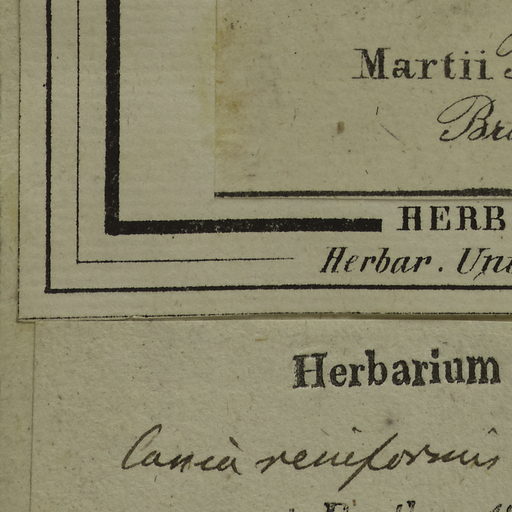 Martii
Bra
HERB
Herbar. Uni
Herbarium
Cassia reniformis